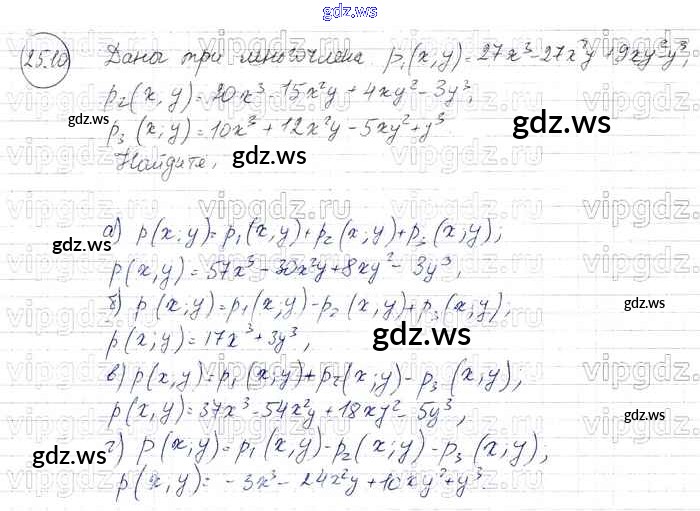 gdz.ws
25.10 Даны три многочлена p₁(x;y)=27x³-27x²y+9xy²-y³,
p₂(x,y)=20x³-15x²y+4xy²-3y³,
p₃(x;y)=10x³+12x²y-5xy²+y³.
Найдите,
а) p(x;y)=p₁(x,y)+p₂(x;y)+p₃(x;y);
p(x;y)=57x³-30x²y+8xy²-3y³,
б) p(x;y)=p₁(x;y)-p₂(x,y)+p₃(x;y);
p(x;y)=17x³+3y³,
в) p(x;y)=p₁(x;y)+p₂(x;y)-p₃(x;y);
p(x;y)=37x³-54x²y+18xy²-5y³,
г) p(x;y)=p₁(x;y)-p₂(x;y)-p₃(x;y),
p(x,y)=-3x³-24x²y+10xy²+y³.